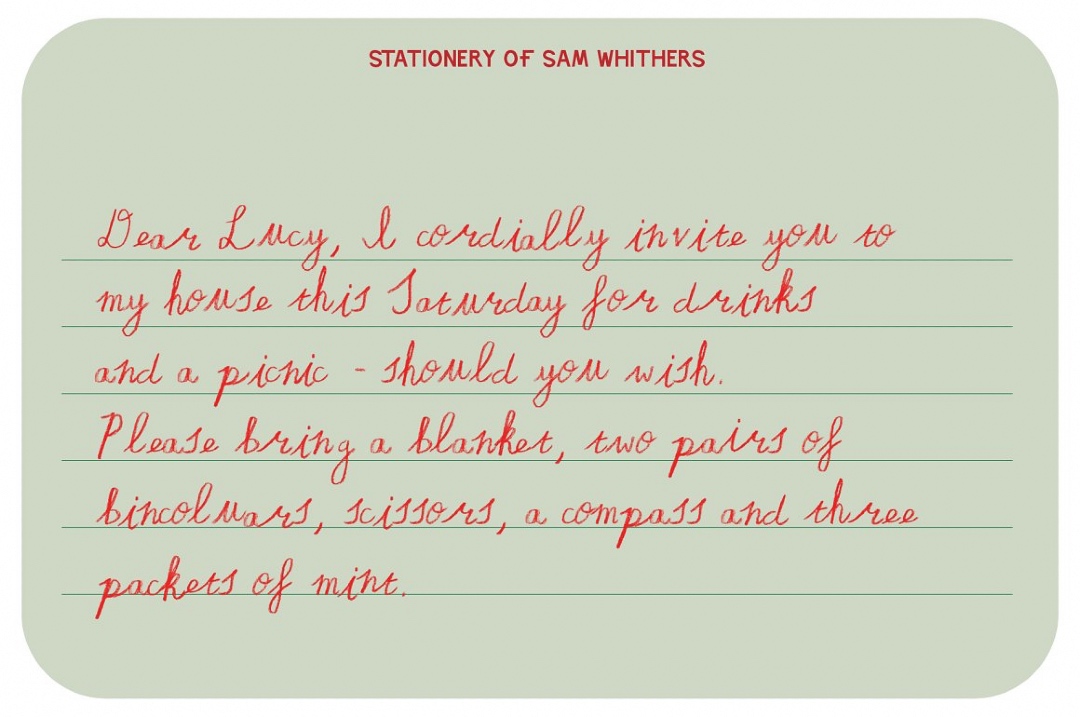 STATIONERY OF SAM WHITHERS
Dear Lucy, I cordially invite you to
my house this Saturday for drinks
and a picnic - should you wish.
Please bring a blanket, two pairs of
bincoluars, scissors, a compass and three
packets of mint.